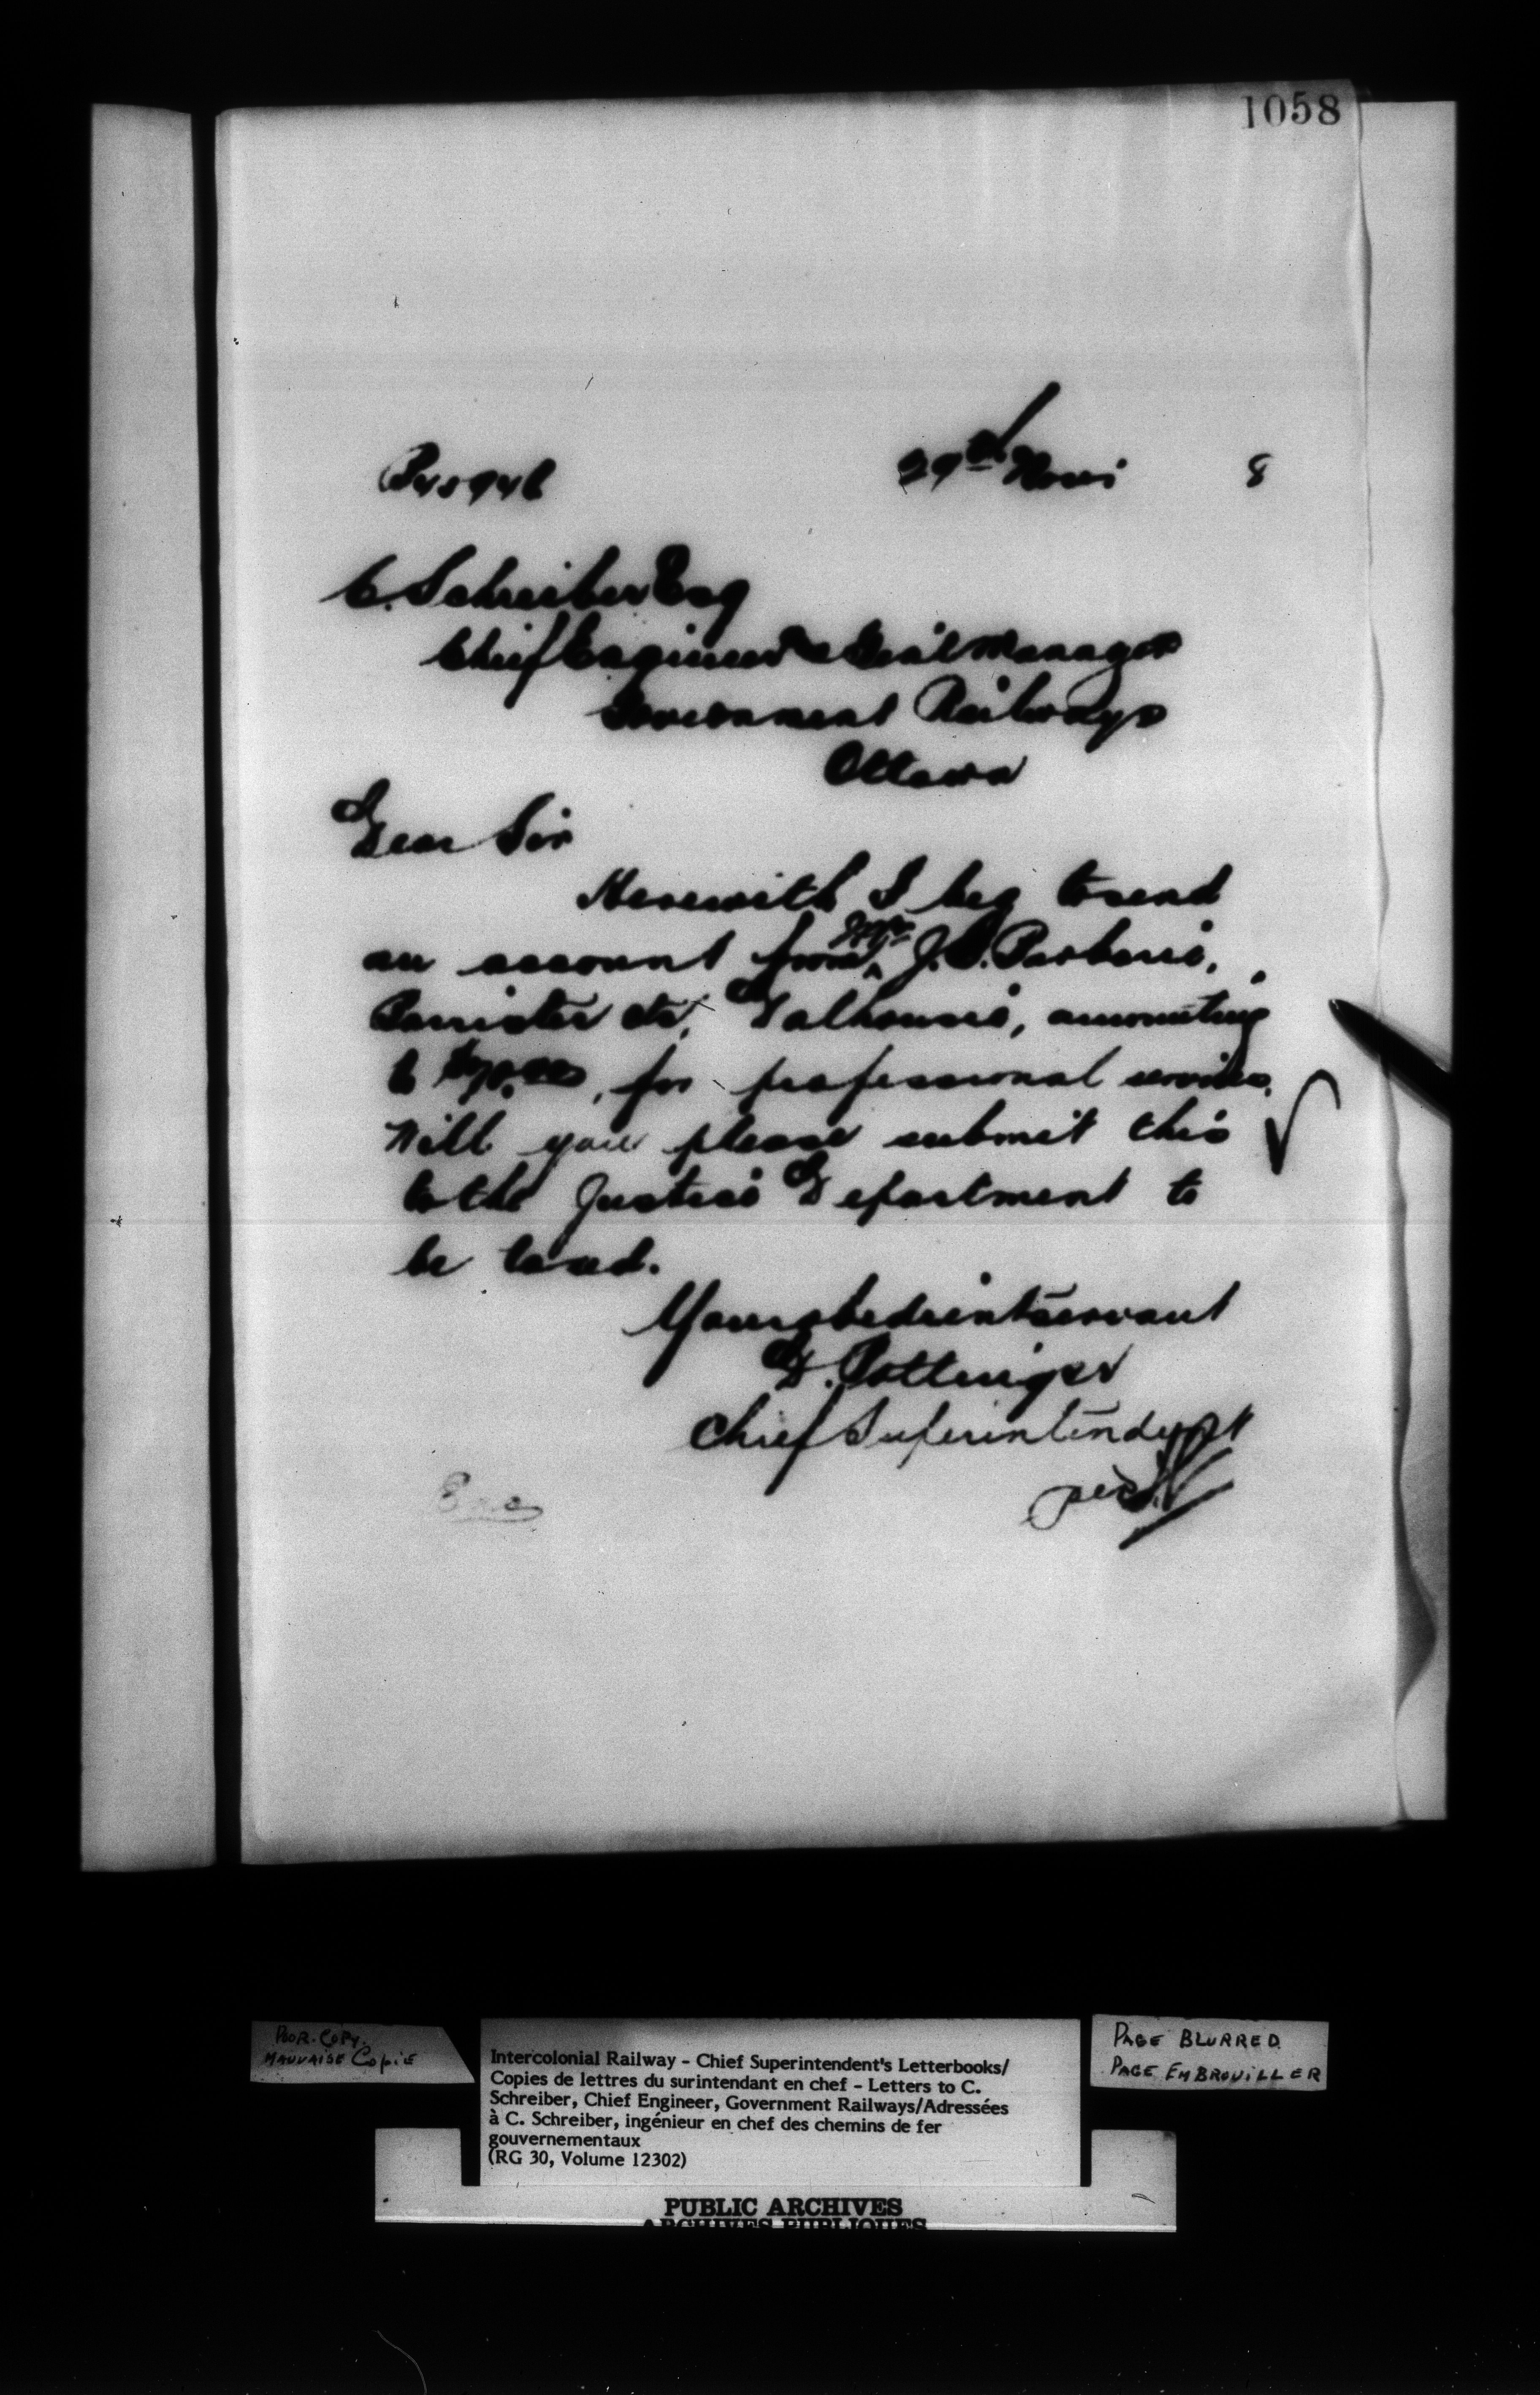 1058
29th Nov 8
C. Schreiber Esq
Chief Engineer & Genl Manager
Government Railways
Ottawa
Dear Sir
Herewith I beg to send
an account from Mr J. S. Barberie,
Barrister etc, Dalhousie, amounting
to , for professional services.
Will you please submit this
to the Justice Department to
be taxed.
Your obedient servant
D. Pottinger
Chief Superintendent
per
Enc
POOR COPY.
MAUVAISE COPIE
Intercolonial Railway - Chief Superintendent's Letterbooks/
Copies de lettres du surintendant en chef - Letters to C.
Schreiber, Chief Engineer, Government Railways/Adressées
à C. Schreiber, ingénieur en chef des chemins de fer
gouvernementaux
(RG 30, Volume 12302)
PAGE BLURRED
PAGE EMBROUILLER
PUBLIC ARCHIVES
ARCHIVES PUBLIQUES